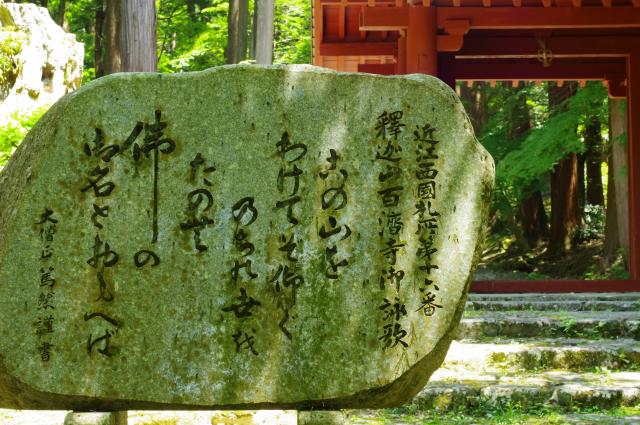 近江西國札所第十六番
釋迦山百濟寺御詠歌
この山を
わけてぞ仰ぐ
のちの世を
たのむ
佛の
御名をおもへば
大僧正 謹書